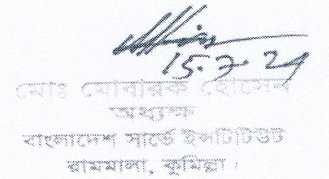 15-7-24
মোঃ মোবারক হোসেন
অধ্যক্ষ
বাংলাদেশ সার্ভে ইন্সটিটিউট
রামমালা, কুমিল্লা।